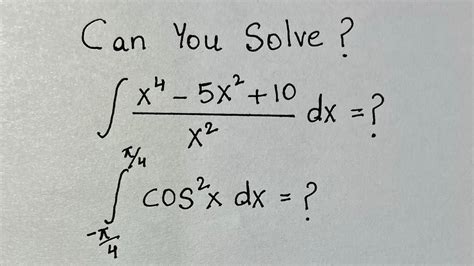 Can You Solve?
∫ (x⁴ - 5x² + 10)/x² dx = ?
∫_{-π/4}^{π/4} cos²x dx = ?